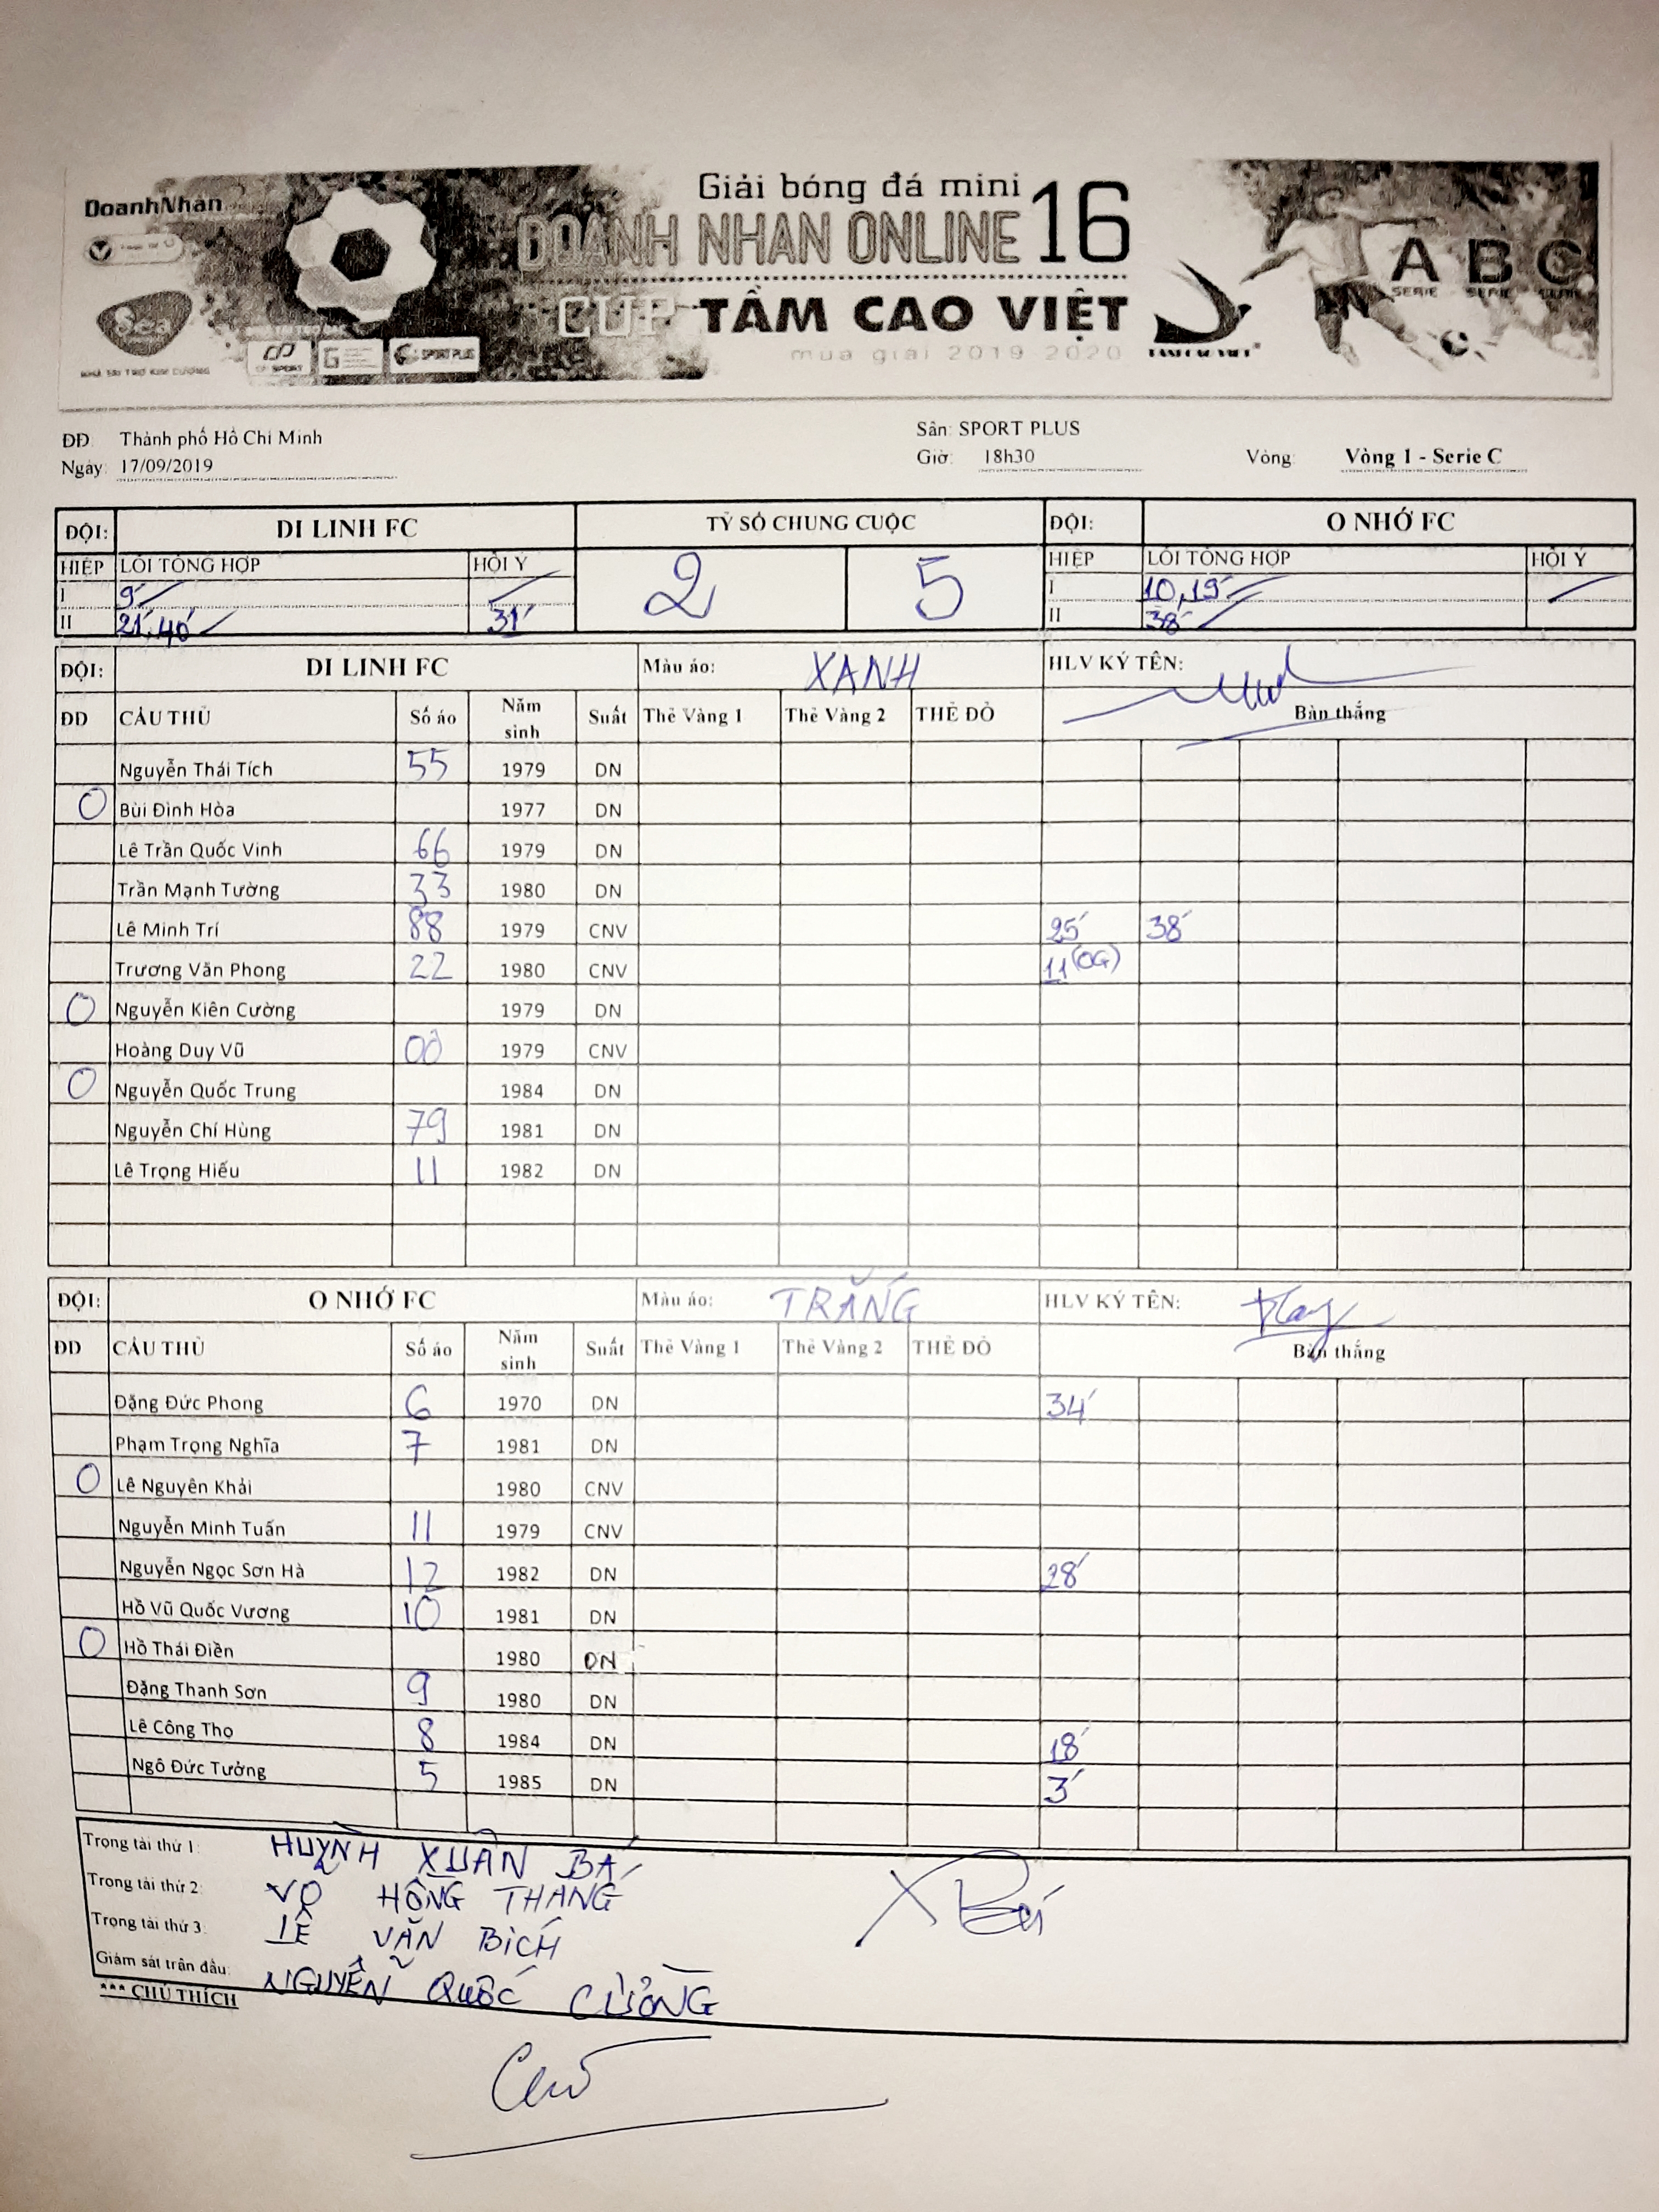 DoanhNhan
Giải bóng đá mini
DOANH NHAN ONLINE 16
CUP TẦM CAO VIỆT
mua giai 2019-2020
Sea
NHÀ TÀI TRỢ KIM CƯƠNG
CP SPORT
SPORT PLUS
TAM CAO VIET
A B C
SERIE SERIE SERIE
ĐĐ: Thành phố Hồ Chí Minh Sân: SPORT PLUS
Ngày: 17/09/2019 Giờ: 18h30 Vòng: Vòng 1 - Serie C
ĐỘI: DI LINH FC TỶ SỐ CHUNG CUỘC ĐỘI: O NHỚ FC
HIỆP LỖI TỔNG HỢP HỘI Ý 2 5 HIỆP LỖI TỔNG HỢP HỘI Ý
I 9' I 10', 19'
II 21', 40' 31' II 38'
ĐỘI: DI LINH FC Màu áo: XANH HLV KÝ TÊN:
ĐD CẦU THỦ Số áo Năm sinh Suất Thẻ Vàng 1 Thẻ Vàng 2 THẺ ĐỎ Bàn thắng
Nguyễn Thái Tích 55 1979 DN
O Bùi Đình Hòa 1977 DN
Lê Trần Quốc Vinh 66 1979 DN
Trần Mạnh Tường 33 1980 DN
Lê Minh Trí 88 1979 CNV 25' 38'
Trương Văn Phong 22 1980 CNV 11 (OG)
O Nguyễn Kiên Cường 1979 DN
Hoàng Duy Vũ 00 1979 CNV
O Nguyễn Quốc Trung 1984 DN
Nguyễn Chí Hùng 79 1981 DN
Lê Trọng Hiếu 11 1982 DN
ĐỘI: O NHỚ FC Màu áo: TRẮNG HLV KÝ TÊN:
ĐD CẦU THỦ Số áo Năm sinh Suất Thẻ Vàng 1 Thẻ Vàng 2 THẺ ĐỎ Bàn thắng
Đặng Đức Phong 6 1970 DN 34'
Phạm Trọng Nghĩa 7 1981 DN
O Lê Nguyên Khải 1980 CNV
Nguyễn Minh Tuấn 11 1979 CNV
Nguyễn Ngọc Sơn Hà 12 1982 DN 28'
Hồ Vũ Quốc Vương 10 1981 DN
O Hồ Thái Điền 1980 DN
Đặng Thanh Sơn 9 1980 DN
Lê Công Thọ 8 1984 DN 18'
Ngô Đức Tưởng 5 1985 DN 3'
Trọng tài thứ 1: HUỲNH XUÂN BÁ
Trọng tài thứ 2: VÕ HỒNG THẮNG
Trọng tài thứ 3: LÊ VĂN BÍCH
Giám sát trận đấu: NGUYỄN QUỐC CƯỜNG
*** CHÚ THÍCH